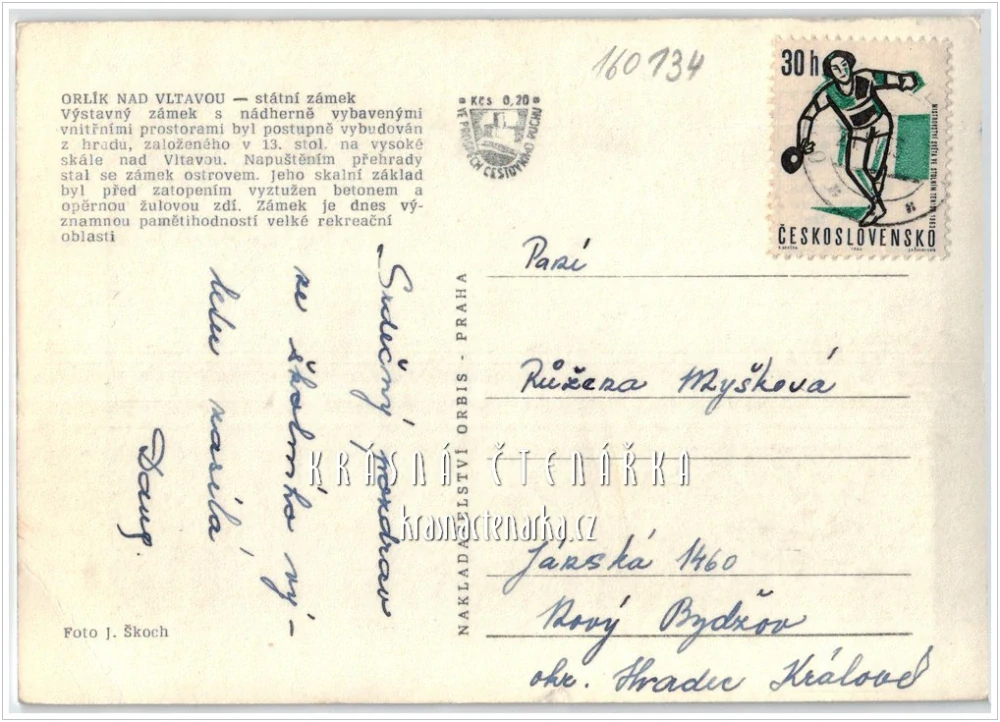 ORLÍK NAD VLTAVOU — státní zámek
Výstavný zámek s nádherně vybavenými
vnitřními prostorami byl postupně vybudován
z hradu, založeného v 13. stol. na vysoké
skále nad Vltavou. Napuštěním přehrady
stal se zámek ostrovem. Jeho skalní základ
byl před zatopením vyztužen betonem a
opěrnou žulovou zdí. Zámek je dnes vý-
znamnou pamětihodností velké rekreační
oblasti
Foto J. Škoch
Srdečný pozdrav
ze školního vý-
letu zasílá
NAKLADATELSTVÍ ORBIS - PRAHA
Kčs 0,20
VE PROSPĚCH CESTOVNÍHO RUCHU
160134
30 h
MISTROVSTVÍ SVĚTA VE STOLNÍM TENISU 1963
ČESKOSLOVENSKO
Paní
Růžena Myšková
1460
Nový Bydžov
okr. Hradec Králové
KRÁSNÁ ČTENÁŘKA
krasnactenarka.cz